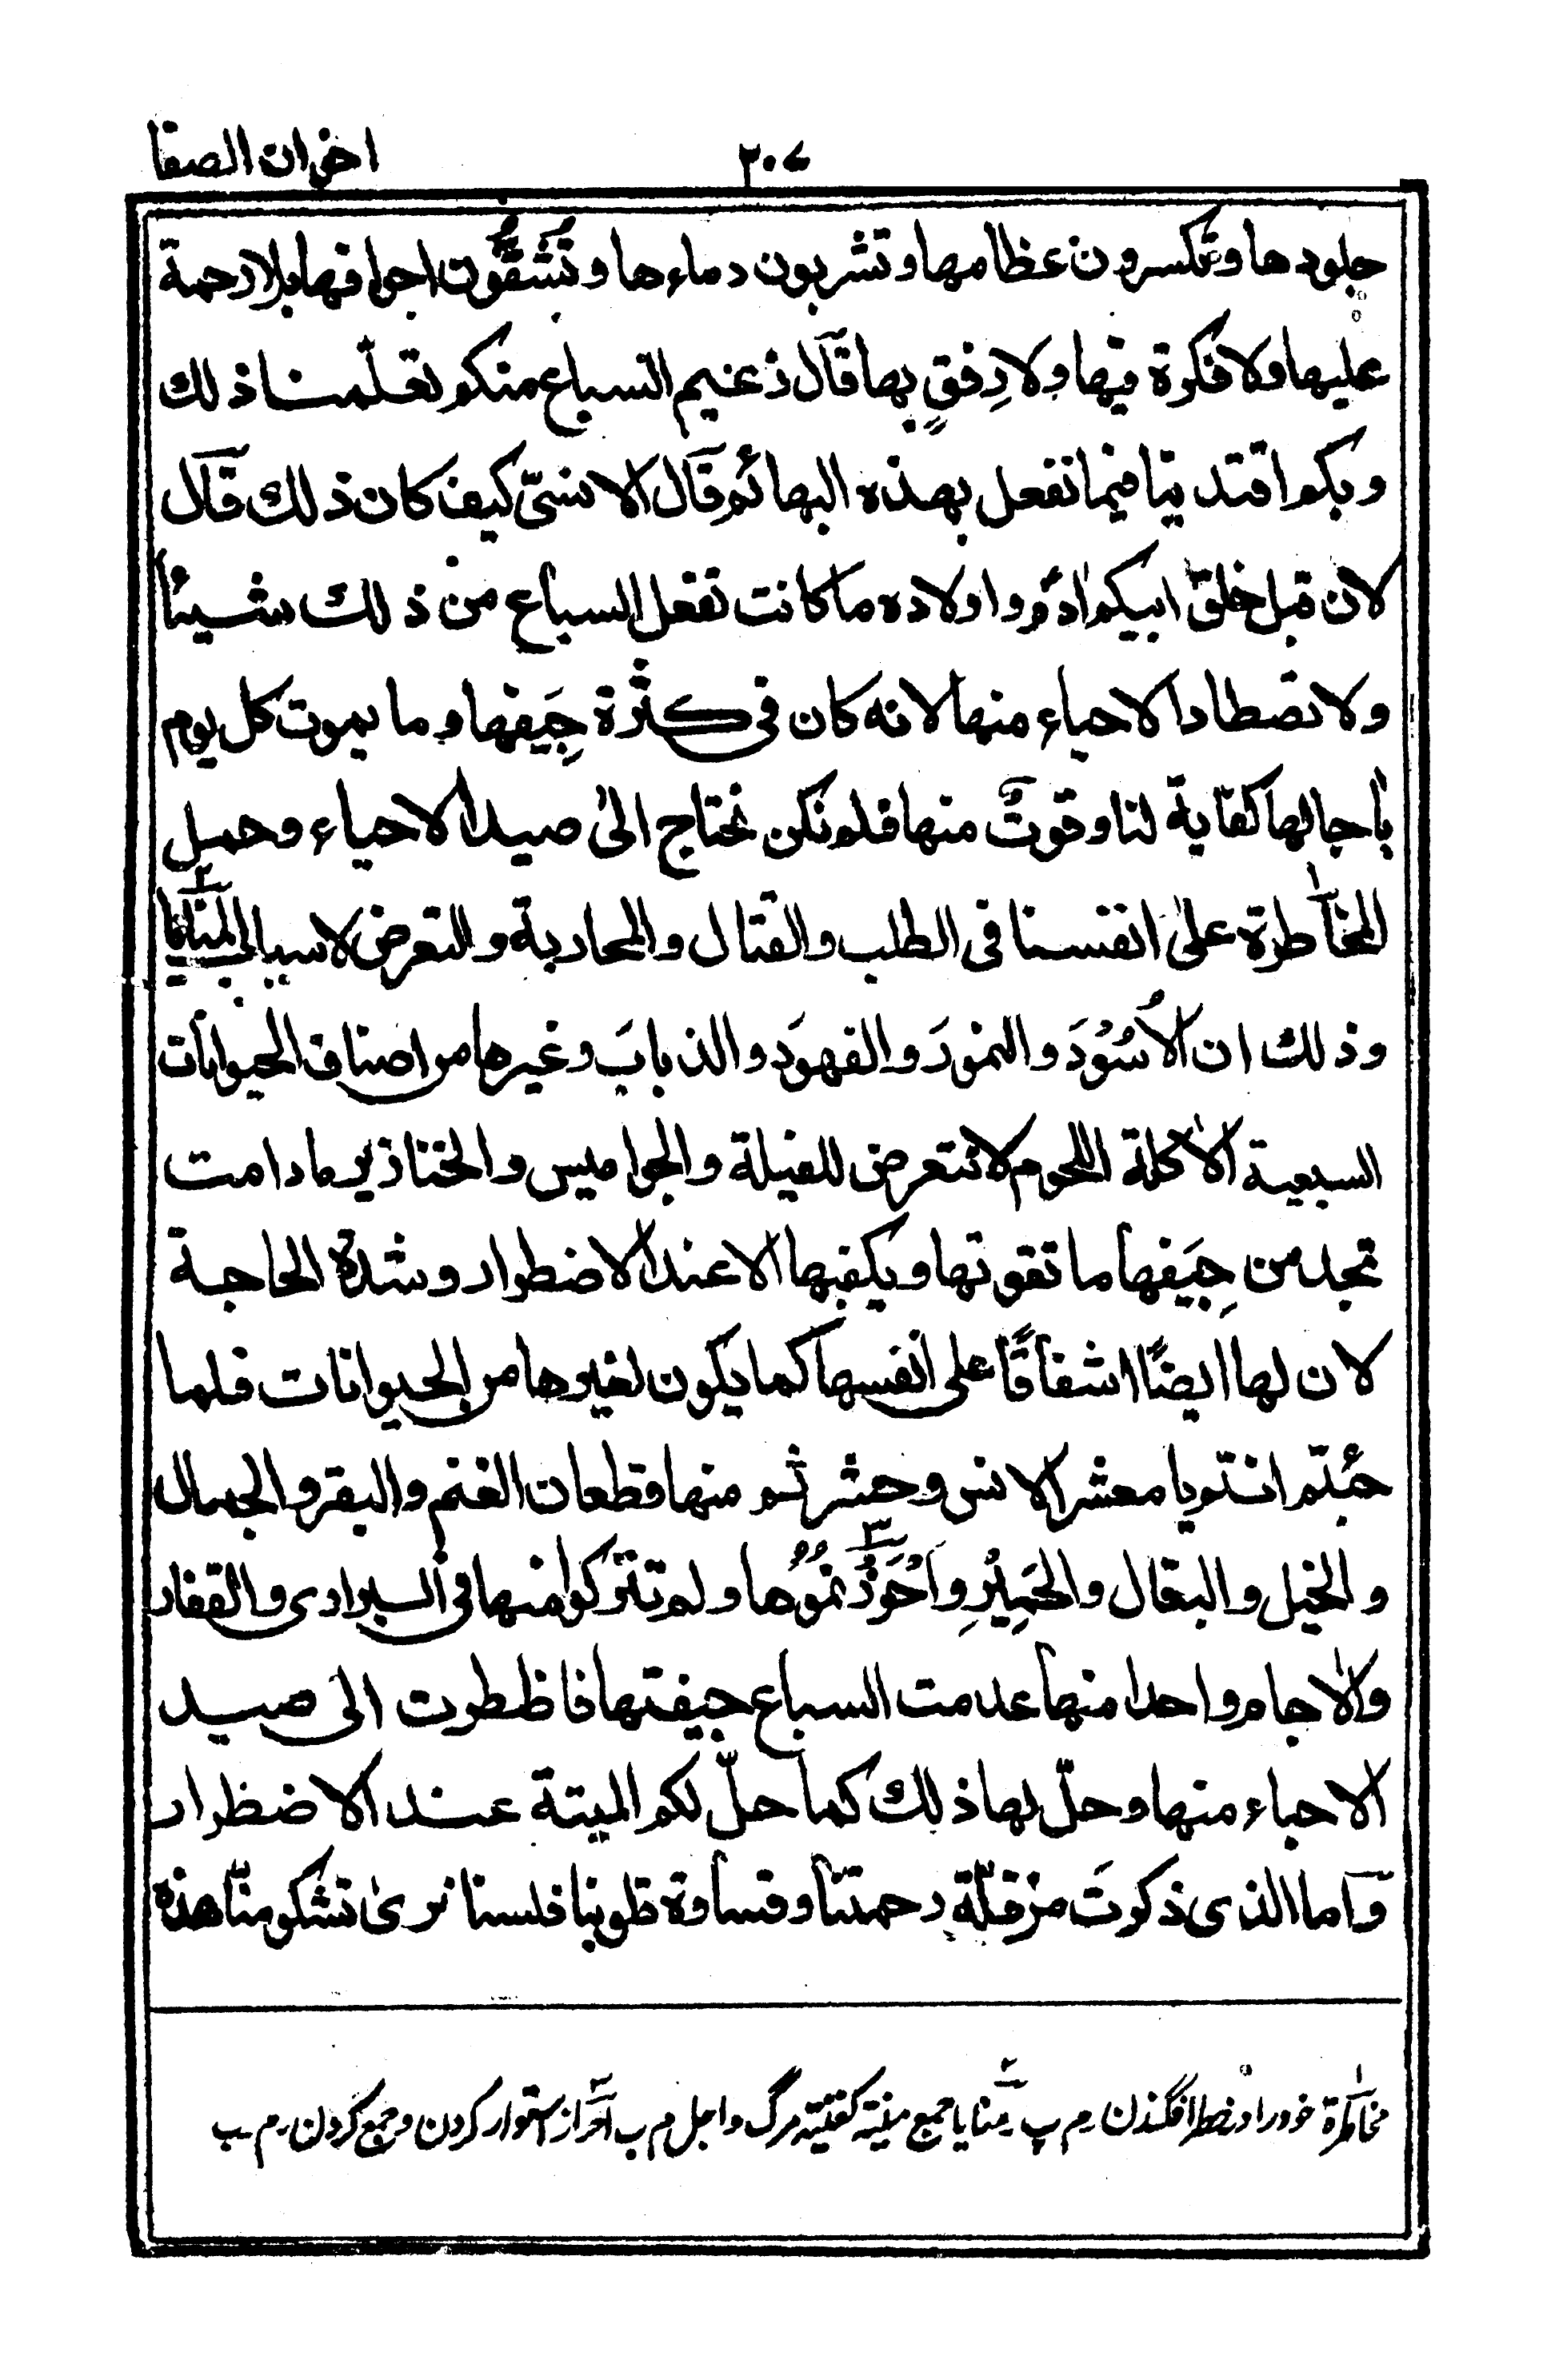 اخوان الصفا ٢٠٧
جلودها وتكسرون عظامها وتشربون دماءها وتَشُقُّون اجوافها بلا رحمة
عليها ولا فكرة فيها ولا رِفقٍ بها قال زعيم السباع منكم تعلّمنا ذلك
وبكم اقتدينا فيما نفعل بهذه البهائم قال الانسىّ كيف كان ذلك قال
لان قبل خلق ابيكم ادم واولاده ما كانت تفعل السباع من ذلك شيئا
ولا تصطاد الاحياء منها لانه كان فى كثرة جِيَفها وما يموت كل يوم
باٰجالها كفاية لنا وقوتٌ منها فلم نكن نحتاج الىٰ صيد الاحياء وحمل
المخاطرة علىٰ انفسنا فى الطلب والقتال والمحاربة والتعرض لاسباب المنايا
وذلك ان الاُسُوْدَ والنمورَ والفهوَد والذبابَ وغيرها من اصناف الحيوانات
السبعية الاٰكلة اللحوم لا تتعرض للفيلة والجواميس والخنازير ما دامت
تجد من جِيَفها ما تقوتها ويكفيها الا عند الاضطرار وشدة الحاجة
لان لها ايضًا اشفاقًا على انفسها كما يكون لغيرها من الحيوانات فلما
جئتم انتم يا معشر الانس وحشرتم منها قطعان الغنم والبقر والجمال
والخيل والبغال والحَمِيْرِ واَحْرَزْتُمُوْها ولم تتركوا منها فى البرادى والقفار
والاٰجام واحدا منها عدمت السباع جيفتها فاظطرت الى صيد
الاحياء منها وحلّ لها ذلك كما حلّ لكم الميتة عند الاضظرار
واما الذى ذكرتَ من قلّة رحمتنا وقساوة قلوبنا فلسنا نرىٰ تشكو منّا هذه
مخاطرة خود را در خطر افگندن ۱۲م ب منايا جمع منية كغنية مرگ واجل م ب احراز استوار كردن وجمع كردن ۱۲م ب